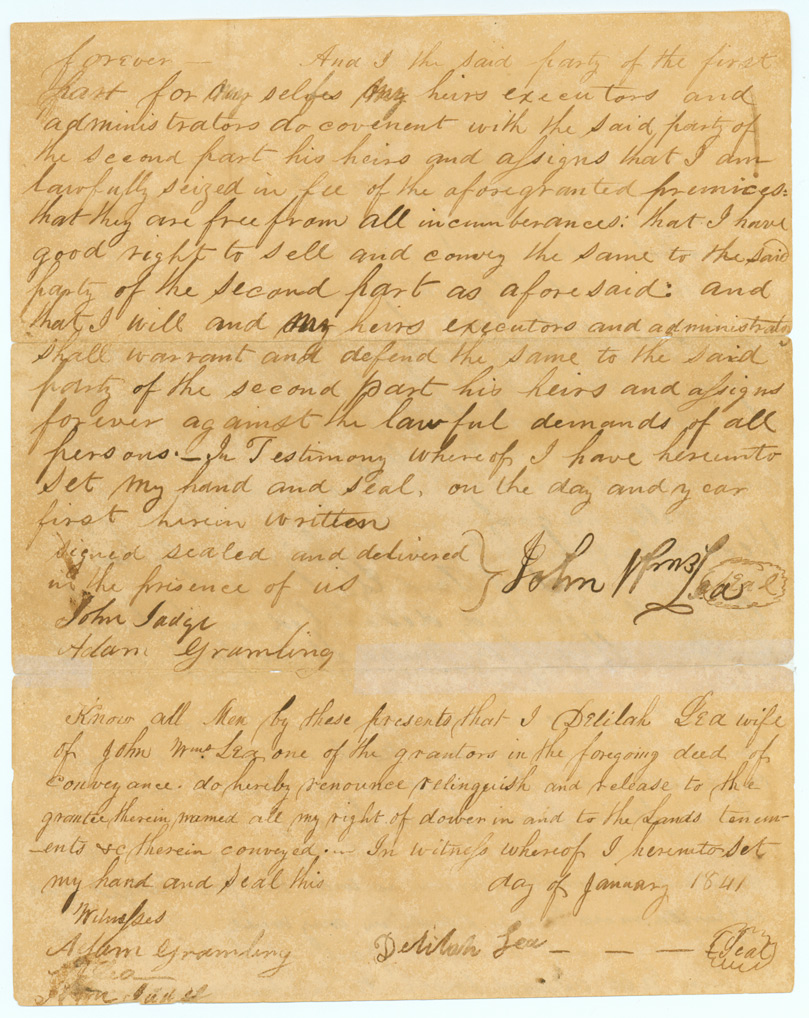 forever — And I the said party of the first
part for my selfes my heirs executors and
administrators do covenent with the said party of
the second part his heirs and assigns that I am
lawfully seized in fee of the aforegranted premices:
that they are free from all incumberances: that I have
good right to sell and convey the same to the said
party of the second part as aforesaid: and
that I will and my heirs executors and administrators
shall warrant and defend the same to the said
party of the second part his heirs and assigns
forever against the lawful demands of all
persons. — In Testimony whereof I have hereunto
set my hand and seal, on the day and year
first herein written
signed sealed and delivered
in the presence of us
John Wms Lea Seal
John Judge
Adam Gramling
Know all Men by these presents that I Delilah Lea wife
of John Wms Lea one of the grantors in the foregoing deed of
conveyance. do hereby renounce relinquish and release to the
grantee therein named all my right of dower in and to the Lands tenem-
-ents &c therein conveyed. — In witness whereof I hereunto set
my hand and seal this day of January 1841
Witnesses
Adam Gramling
Delilah Lea — — — Seal
John Judge